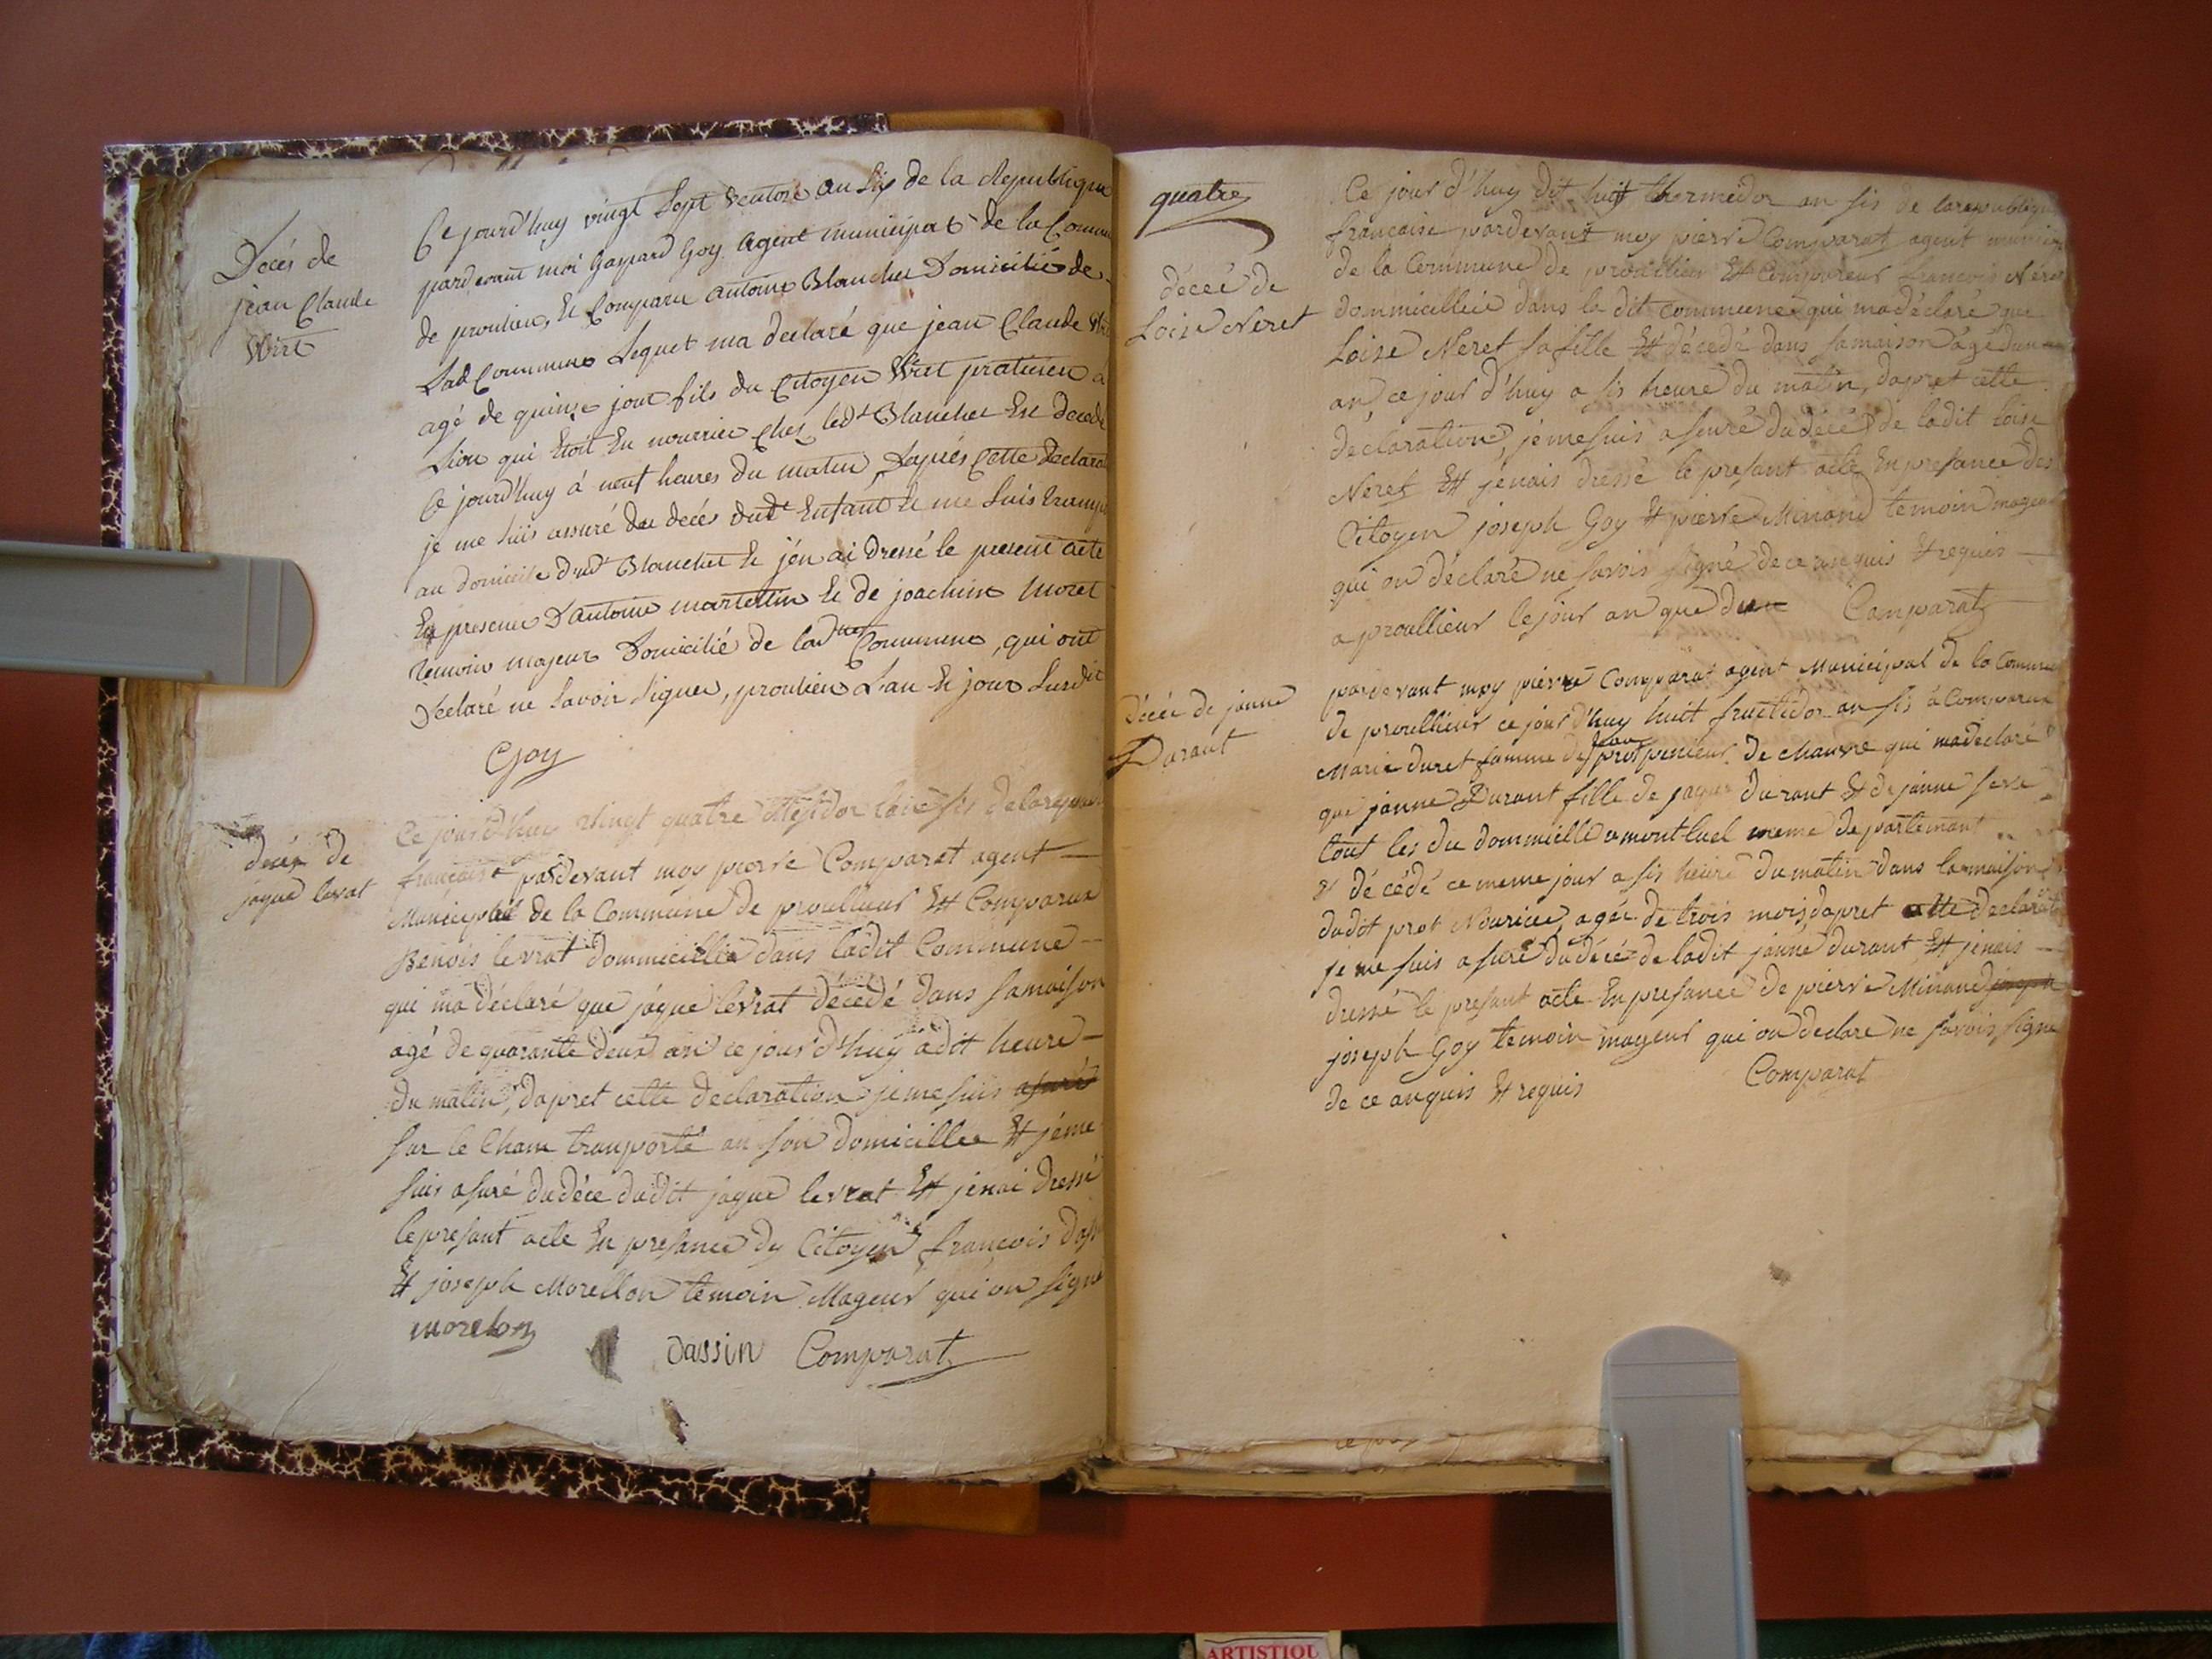 Décés de
jean Claude
Wirt
Ce jourd'huy vingt Sept Ventose au Six de la Republique
pardevant moi Gaspard Goy Agent municipal de la Commu
de proulieu, Et Comparu Antoine Blanchet Domicilié de
Lad Commune Lequel ma declaré que jean Claude
agé de quinze jour fils du Citoyen Wirt praticien a
Lion qui Etoit En nourrice Chez led.t Blanchet Est Decedé
Ce jourd'huy à neuf heures du matin, Dapriés Cette Declara
je me suis assuré du decés dud.t Enfant Et me suis transp
au domicile dud.t Blanchet Et j'en ai Dressé le present acte
En presence D'antoine martellin Et de joachim Moret
temoin majeur Domicilié de lad.ite Commune, qui ont
Declaré ne Savoir Signer, proulieu L'an Et jour Susdit
Goy
decés de
jaque levrat
Ce jourd'huy vingt quatre Mesidor
française pardevant moy pierre Comparat agent
Municipal de la Commune de proullieur Et Comparu
Benois levrat dommicillie dans ladit Commune
qui ma déclaré que jaque levrat décédé dans samaison
agé de quarante deux ans ce jour d'huy a dit heure
du matin, dapret cette declaration je me suis asuré
sur le Cham tranporté an son domicillee Et jéme
suis asuré dudéce dudit jaque levrat Et jénai dressé
le presant acte En presance dy Citoyen françois das
Et joseph Morellon temoin Mageur qui on signe
morelon
dassin Comparat
quatre
décéé de
Loise Neret
Ce jour d'huy dit huit thermidor an sis de larepublique
francaise pardevant moy pierre Comparat agent munici
de la Commune de proullieu Et Compareus francois Nere
dommicilliée dans la dit commune qui madéclaré que
Loise Neret sa fille Et décedé dans samaison agé dun
an, ce jour d'huy a sis heure du matin, dapret cette
déclaration, jemesuis asuré dudéce de ladit loise
Neret Et jénais dressé le presant acte En presance des
Citoyen joseph Goy Et pierre Minand temoin mageu
qui on déclaré ne savois signé de ce anquis Et requis
a proullieur lejour an que Comparat
décée de janne
Durant
pardevant moy pierre Comparat agent Municipal de la Commu
de proullieur ce jour d'huy huit fructidor an sis a Comparue
Marie duret famme de jean prot penieur de chanvre qui madeclaré
que janne Durant fille de jaque durant Et de janne
tout les du dommicille a mont luel meme departemant
décédé ce meme jour a sis heure du matin dans lamaison
dudit prot Nourice, agée de trois mois, dapret cette declarat
je me suis asuré dudécé de ladit janne durant Et jénais
dressé le presant acte En presance de pierre Minand joseph
joseph Goy temoin mageur qui on declare ne savois signe
de ce anquis Et requis Comparat
ARTISTIQU